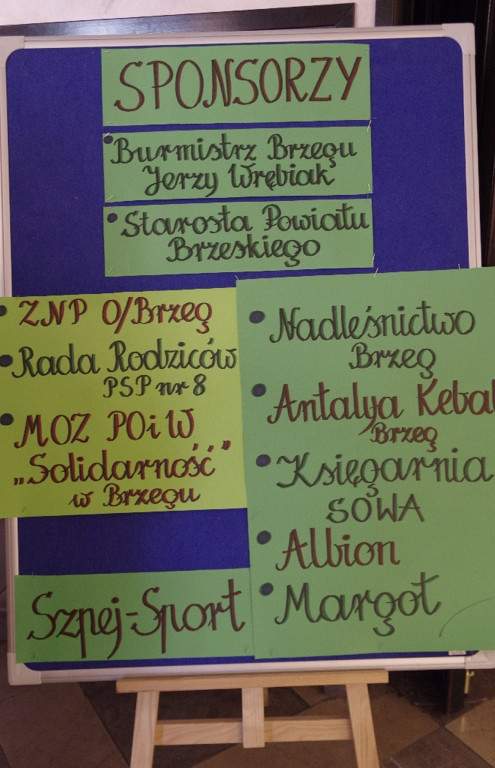 SPONSORZY
Burmistrz Brzegu
Jerzy Wrębiak
Starosta Powiatu
Brzeskiego
ZNP O/Brzeg
Rada Rodziców
PSP nr 8
MOZ POiW
„Solidarność”
w Brzegu
Sznej-Sport
Nadleśnictwo
Brzeg
Antalya Kebab
Brzeg
Księgarnia
SOWA
Albion
Margot